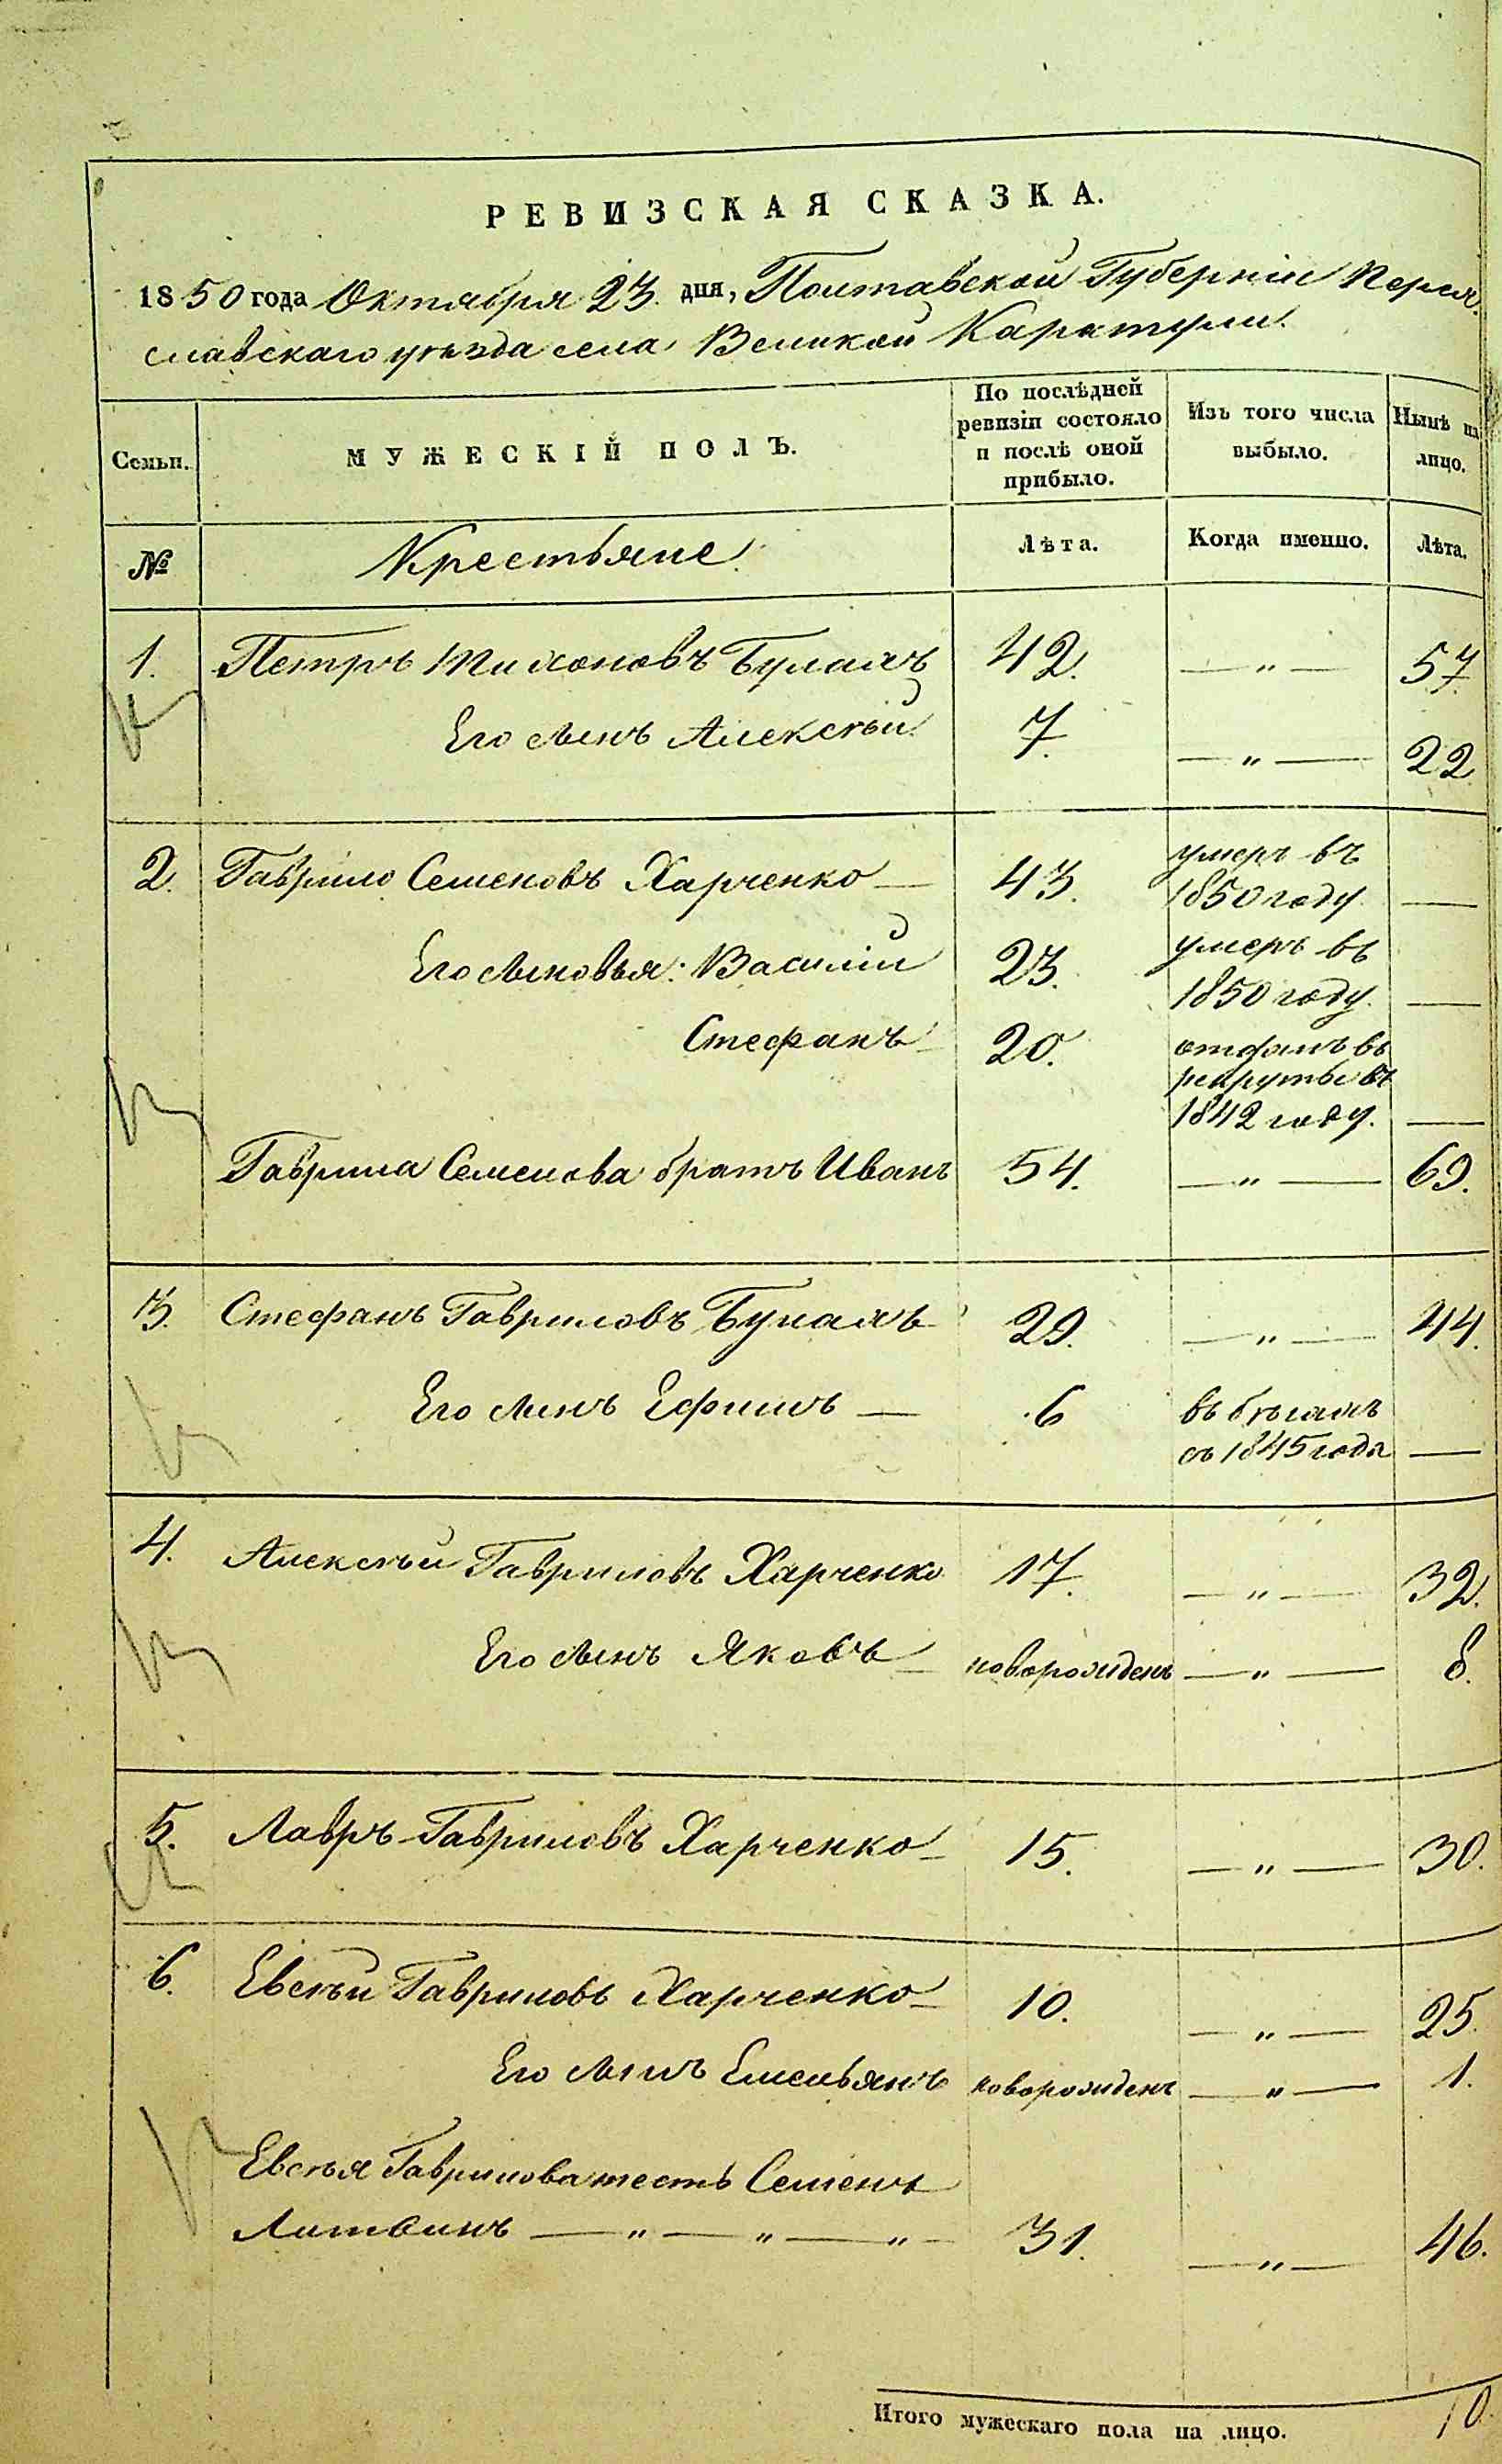 РЕВИЗСКАЯ СКАЗКА.
1850 года Октября 23. дня, Полтавской Губерніи Перея-
славскаго уѣзда села Великой Каратули.
Семьи.
МУЖЕСКІЙ ПОЛЪ.
По послѣдней ревизіи состояло и послѣ оной прибыло.
Изъ того числа выбыло.
Нынѣ на лицо.
№
Крестьяне.
Лѣта.
Когда именно.
Лѣта.
1. Петръ Тихоновъ Булахъ 42. —"— 57.
Его сынъ Алексѣй 7. —"— 22.
2. Гаврило Семеновъ Харченко — 43. умеръ въ
1850 году. —
Его сыновья: Василій 23. умеръ въ
1850 году. —
Стефанъ 20. отданъ въ
рекруты въ
1842 году. —
Гаврила Семенова братъ Иванъ 54. —"— 69.
3. Стефанъ Гавриловъ Булахъ 29. —"— 44.
Его сынъ Ефимъ — 6 въ бѣгахъ
съ 1845 года —
4. Алексѣй Гавриловъ Харченко 17. —"— 32.
Его сынъ Яковъ новорожденъ —"— 8.
5. Лавръ Гавриловъ Харченко 15. —"— 30.
6. Евсѣй Гавриловъ Харченко 10. —"— 25.
Его сынъ Емельянъ новорожденъ —"— 1.
Евсѣя Гаврилова тесть Семенъ
Литвинъ —"—"—"— 31. —"— 46.
Итого мужескаго пола на лицо. 10.